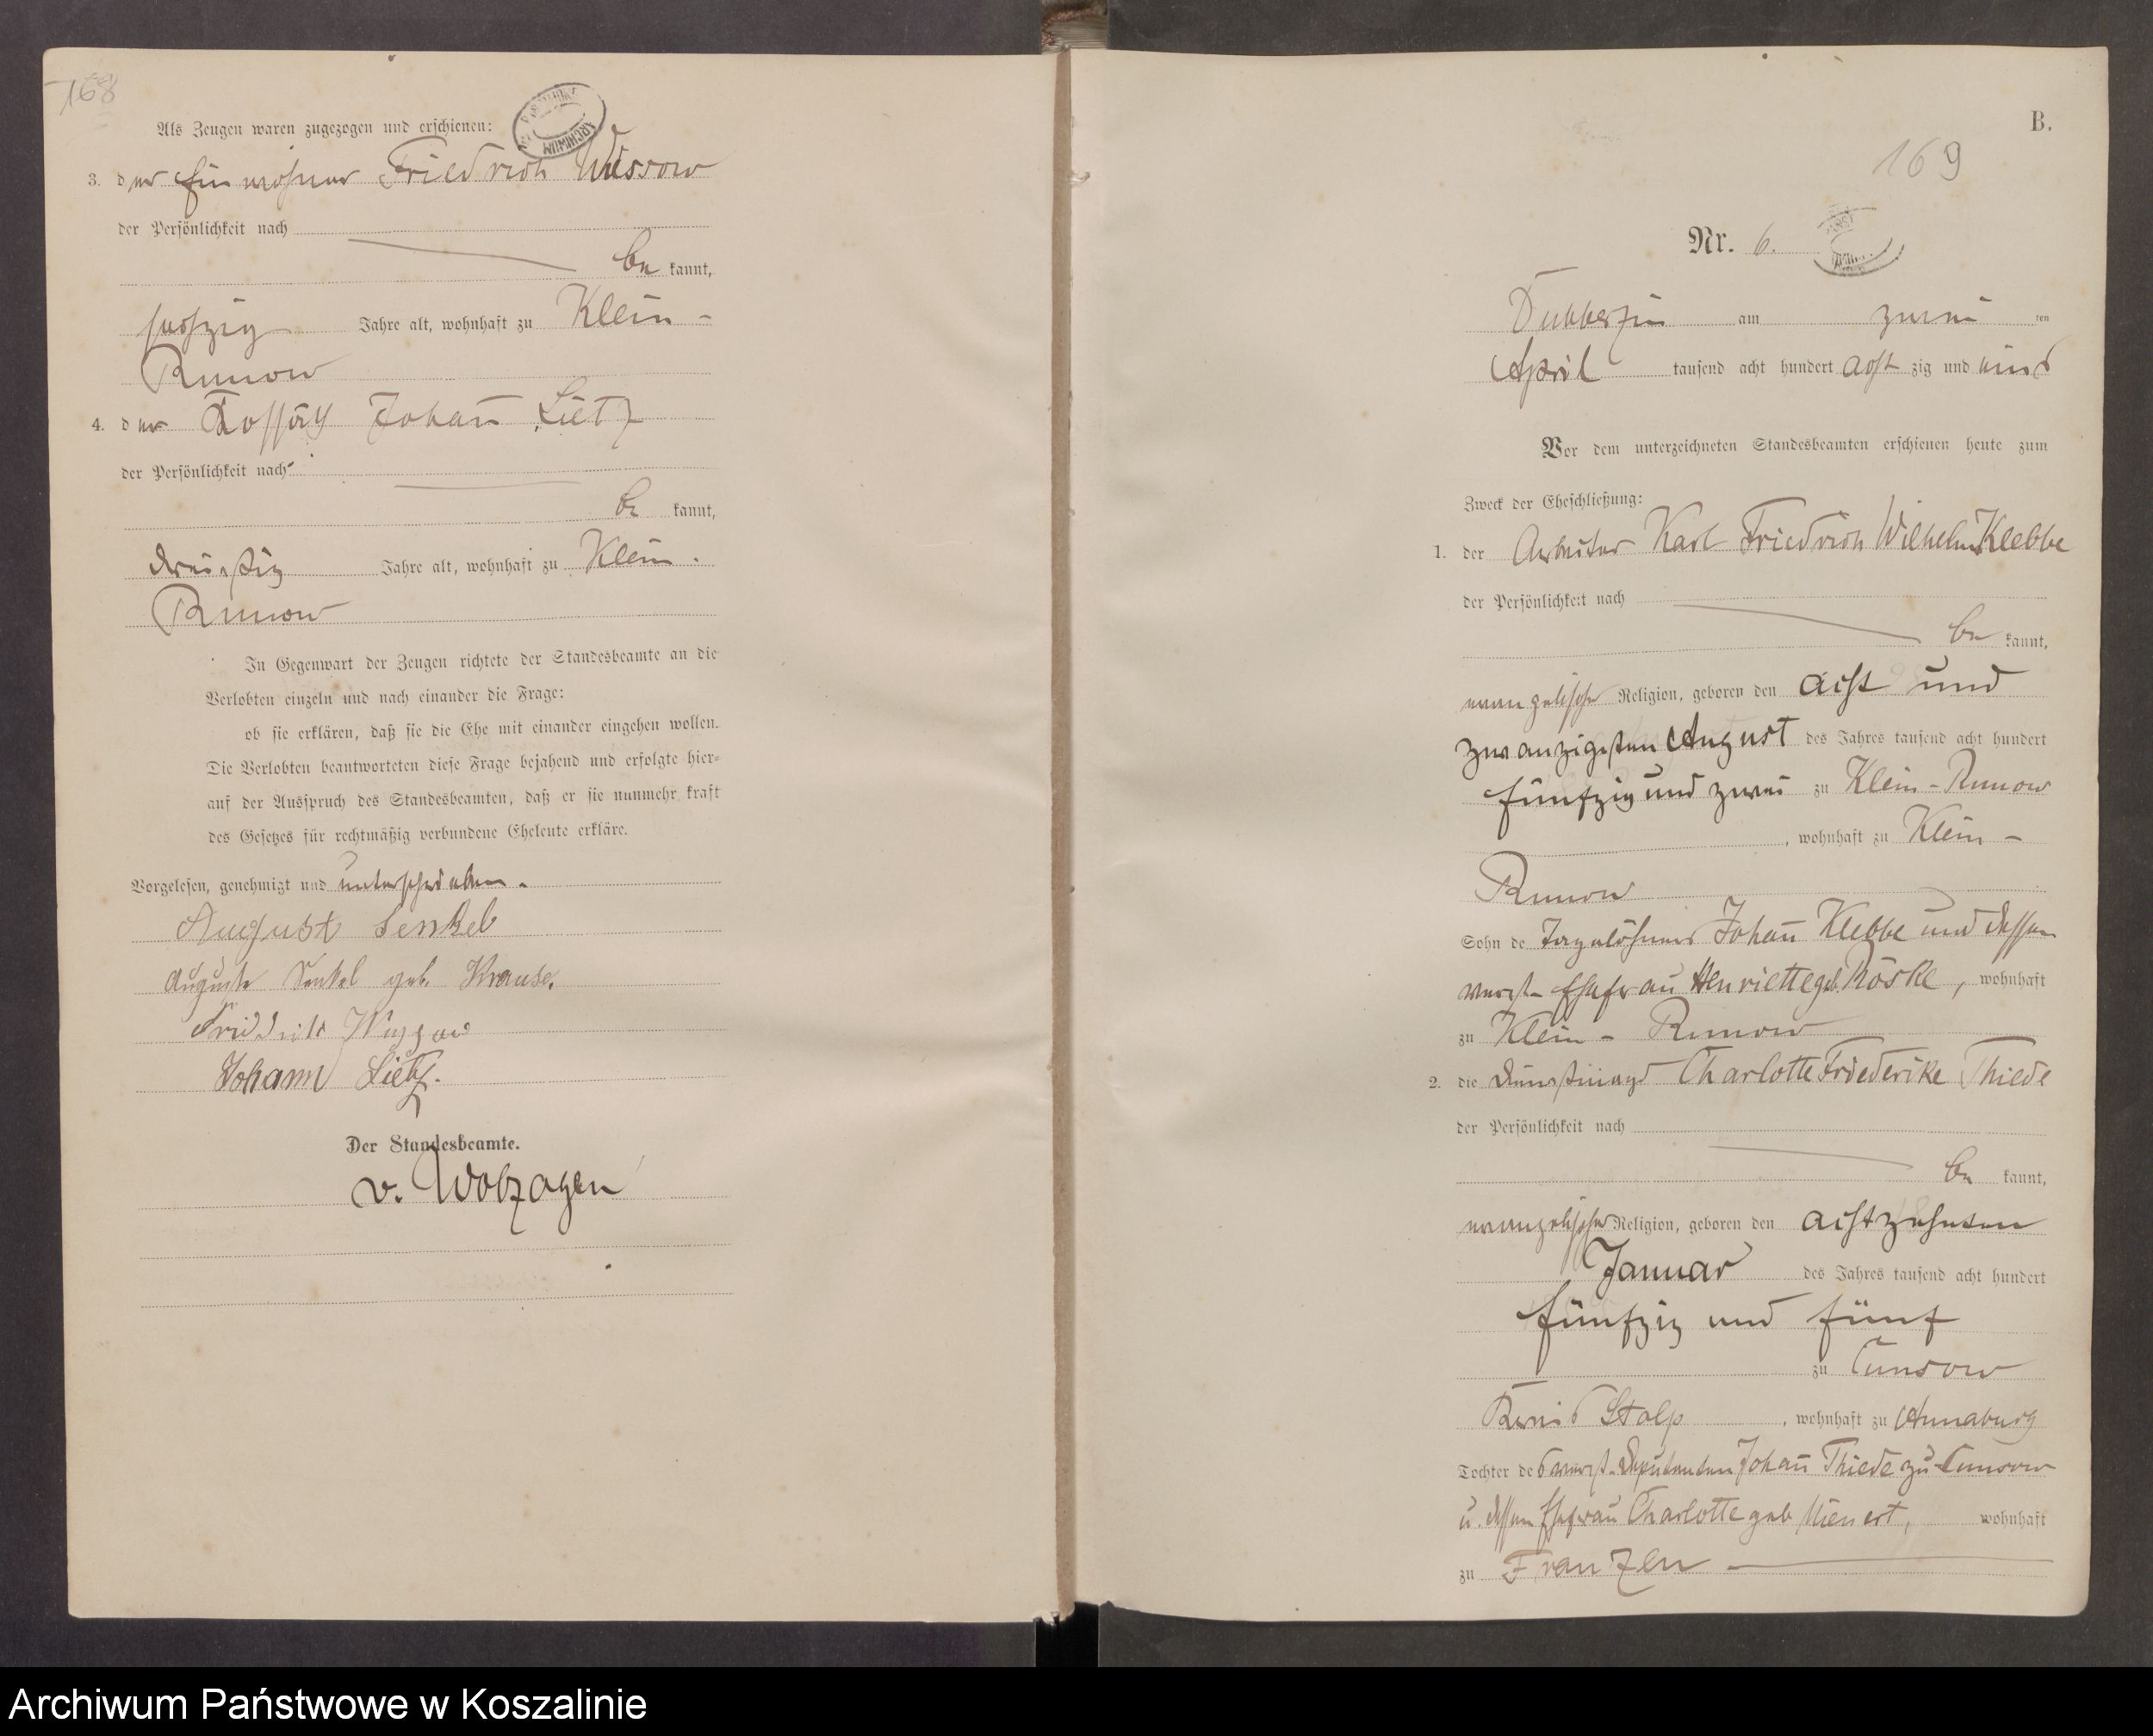 168
Als Zeugen waren zugezogen und erschienen:
3. der Einwohner Friedrich Wussow
der Persönlichkeit nach
be kannt,
sechzig Jahre alt, wohnhaft zu Klein-
Runow
4. der Kossäth Johañ Lietz
der Persönlichkeit nach
be kannt,
dreißig Jahre alt, wohnhaft zu Klein-
Runow
In Gegenwart der Zeugen richtete der Standesbeamte an die
Verlobten einzeln und nach einander die Frage:
ob sie erklären, daß sie die Ehe mit einander eingehen wollen.
Die Verlobten beantworteten diese Frage bejahend und erfolgte hier-
auf der Ausspruch des Standesbeamten, daß er sie nunmehr kraft
des Gesetzes für rechtmäßig verbundene Eheleute erkläre.
Vorgelesen, genehmigt und unterschrieben.
August Senkel
Auguste Senkel geb. Krause.
Friedrich Wussow
Johann Lietz.
Der Standesbeamte.
v. Wolzogen
B.
169
Nr. 6.
Dubberzin am zwei ten
April tausend acht hundert acht zig und eins
Vor dem unterzeichneten Standesbeamten erschienen heute zum
Zweck der Eheschließung:
1. der Arbeiter Karl Friedrich Wilhelm Klebbe
der Persönlichkeit nach
be kannt,
evangelischer Religion, geboren den acht und
zwanzigsten August des Jahres tausend acht hundert
fünfzig und zwei zu Klein-Runow
, wohnhaft zu Klein-
Runow
Sohn de Tagelöhners Johañ Klebbe und dessen
verst. Ehefrau Henriette geb. Röske, wohnhaft
zu Klein-Runow
2. die Dienstmagd Charlotte Friederike Thiede
der Persönlichkeit nach
be kannt,
evangelischer Religion, geboren den achtzehnten
Januar des Jahres tausend acht hundert
fünfzig und fünf
zu Cunsow
Kreis Stolp, wohnhaft zu Annaburg
Tochter des verst. Deputanten Johañ Thiede zu Cunsow
u. dessen Ehefrau Charlotte geb. Mienert, wohnhaft
zu Franzen
Archiwum Państwowe w Koszalinie